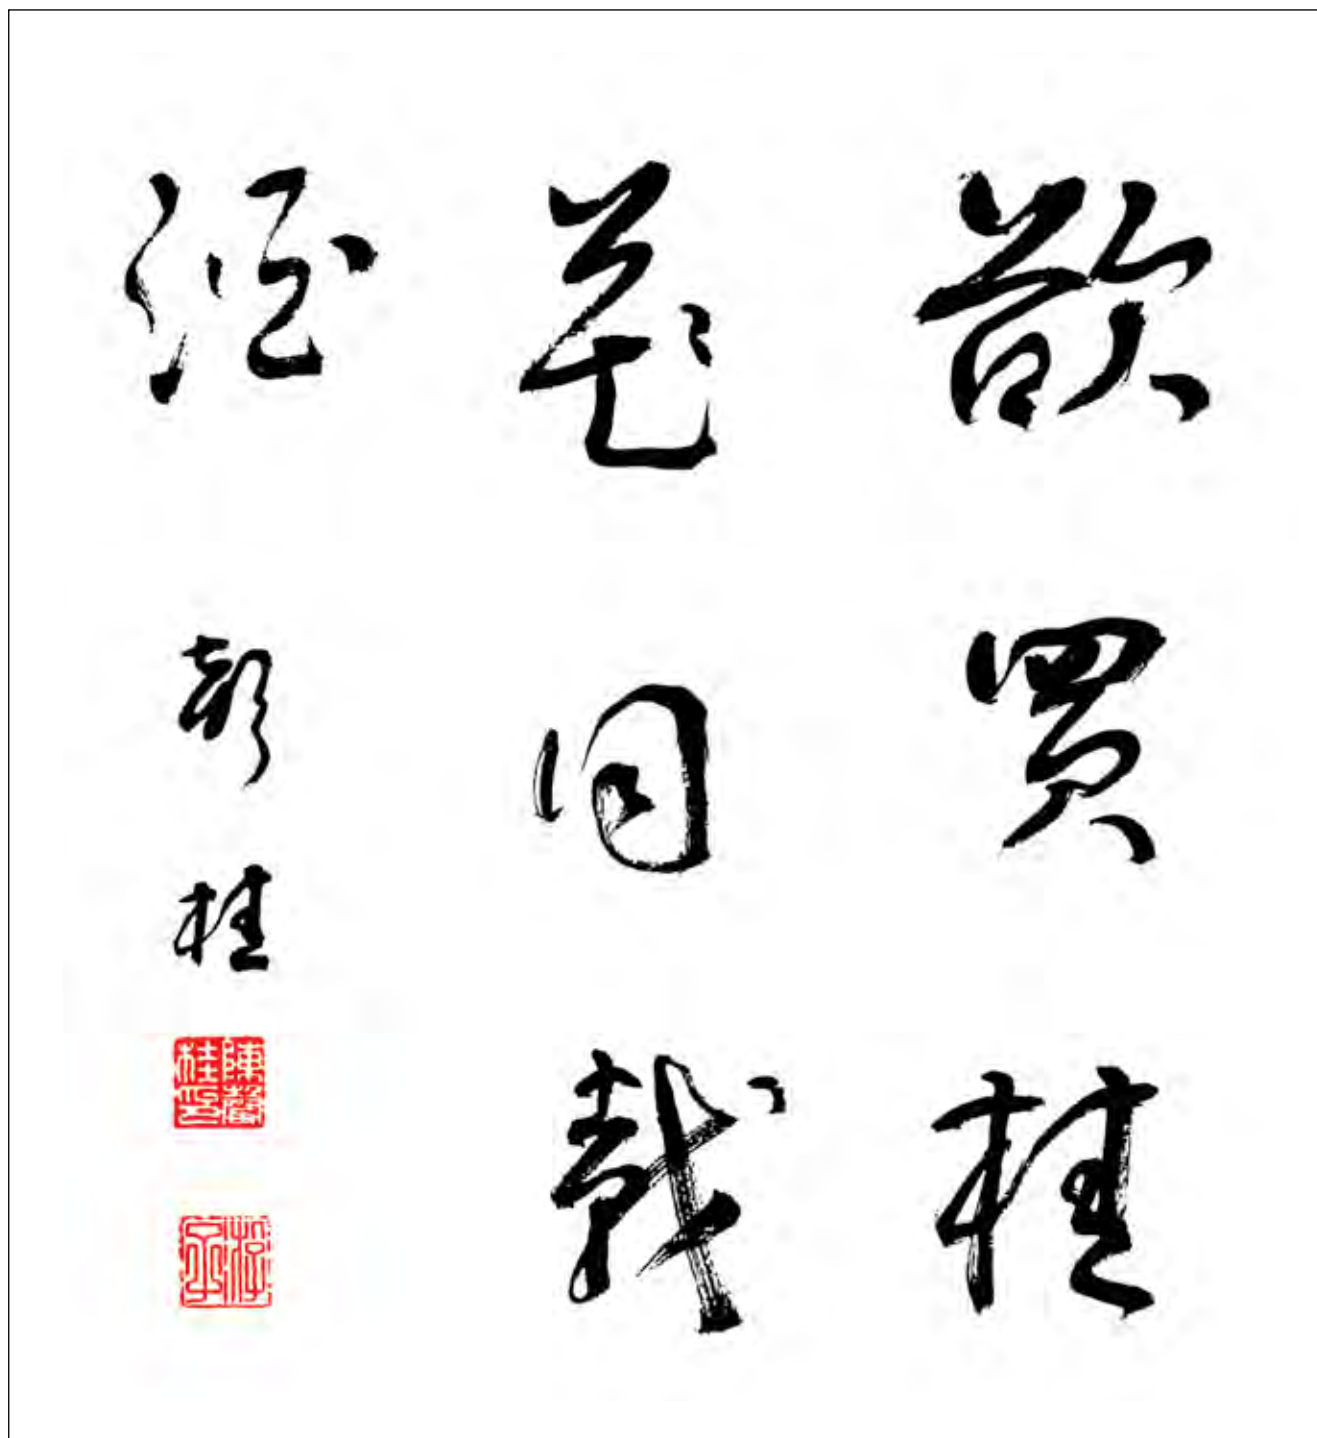 欲買桂
花同載
酒
彭桂
陳彭桂印